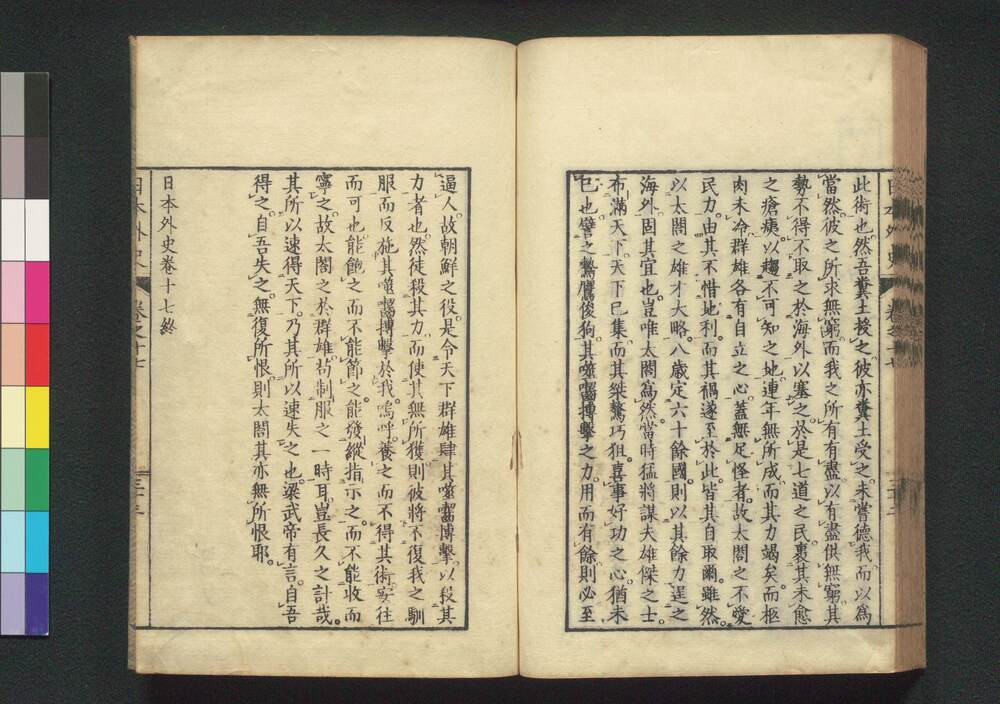 此術也然吾糞土投之彼亦糞土受之未嘗德我而以爲
當然彼之所求無窮而我之所有有盡以有盡供無窮其
勢不得不取之於海外以塞之於是七道之民裹其未愈
之瘡痍以趨不可知之地連年無所成而其力竭矣而極
肉未冷群雄各有自立之心蓋無足怪者故太閤之不愛
民力由其不惜地利而其禍遂至於此皆其自取爾雖然
以太閤之雄才大略八歲定六十餘國則以其餘力逞之
海外固其宜也豈唯太閤爲然當時猛將謀夫雄傑之士
布滿天下天下已集而其桀驁巧狙喜事好功之心猶未
已也譬之鷙鷹俊狗其噬齧搏擊之力用而有餘則必至
逼人故朝鮮之役是令天下群雄肆其噬齧搏擊以殺其
力者也然徒殺其力而使其無所獲則彼將不復我之馴
服而反施其噬齧搏擊於我嗚呼養之而不得其術安往
而可也能飽之而不能節之能發縱指示之而不能收而
寧之故太閤之於群雄苟制服之一時耳豈長久之計哉
其所以速得天下乃其所以速失之也梁武帝有言自吾
得之自吾失之無復所恨則太閤其亦無所恨耶
日本外史卷十七終
日本外史 卷之十七